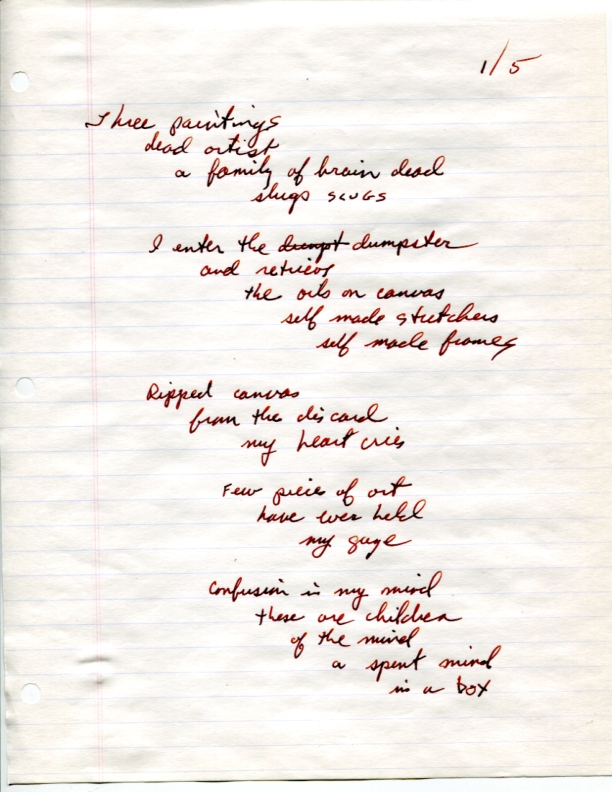 1/5
Three paintings
dead artist
a family of brain dead
slugs SLUGS
I enter the dumpster
and retrieve
the oils on canvas
self made stretchers
self made frames
Ripped canvas
from the discard
my heart cries
Few pieces of art
have ever held
my gaze
Confusion in my mind
these are children
of the mind
a spent mind
in a box